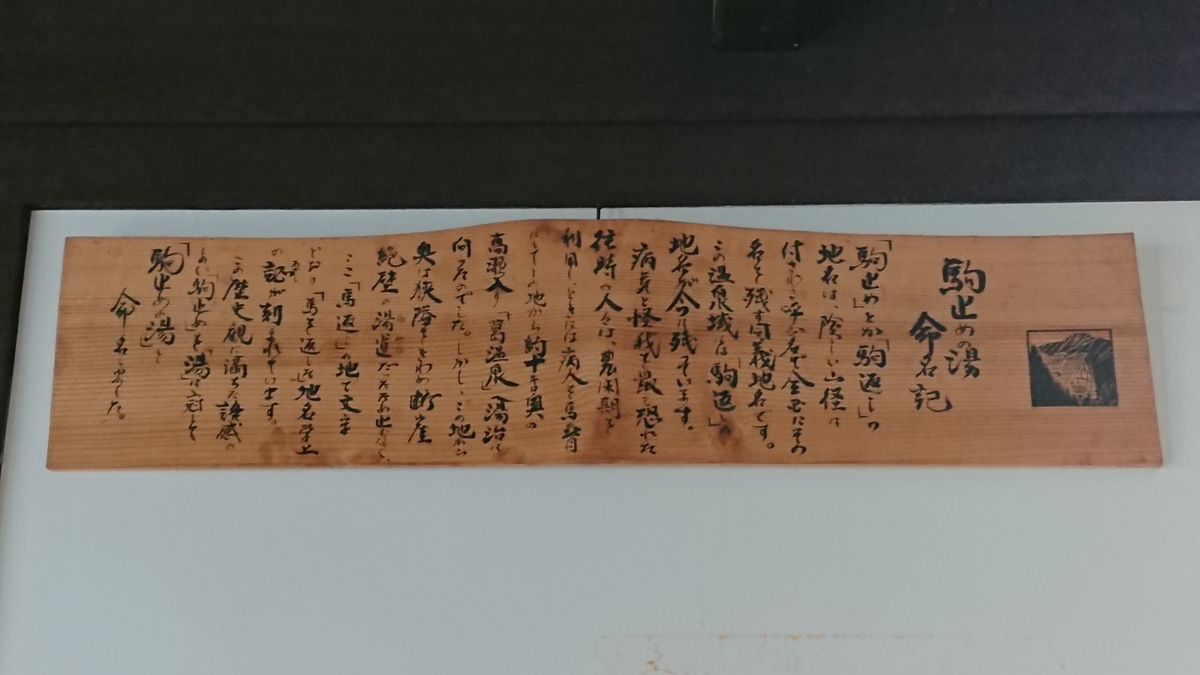 駒止めの湯
命名記
「駒止め」とか「駒返し」の
地名は、険しい山径に
付きわる呼び名で全国にその
名を残す同義地名です。
この温泉域には「駒返し」の
地名が今に残っています。
病気と怪我を最も恐れた
往時の人々は、農閑期を
利用し、ときには病人を馬背
にこの地から約十キロ奥の
高瀬入り「葛温泉」へ湯治に
向ったのでした。しかし、この地から
奥は狭隘をきわめ断崖
絶壁の湯道
ここ「馬返し」の地で文字
どおり「馬を返した」地名学上
の証が刻まれています。
この歴史観に満ちた語感の
よい「駒止め」を「湯」に冠して
「駒止めの湯」と
命名しました。